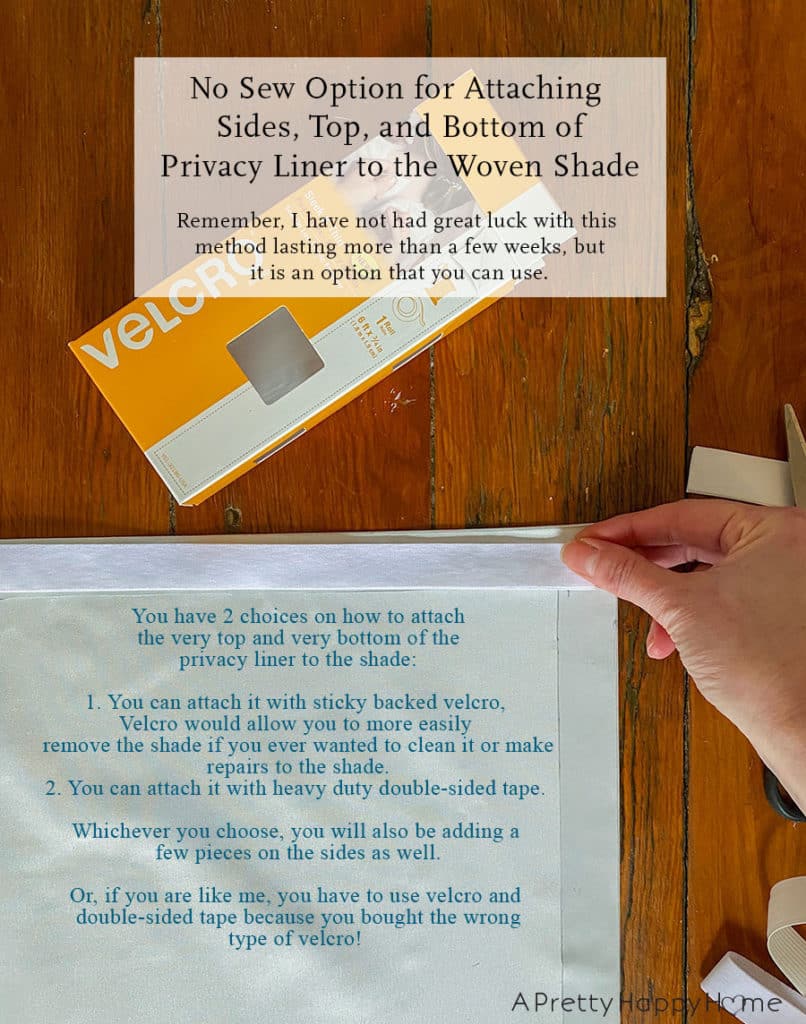 No Sew Option for Attaching
Sides, Top, and Bottom of
Privacy Liner to the Woven Shade
Remember, I have not had great luck with this
method lasting more than a few weeks, but
it is an option that you can use.
VELCRO
1 Roll
6 ft x 3/4 in
You have 2 choices on how to attach
the very top and very bottom of the
privacy liner to the shade:
1. You can attach it with sticky backed velcro,
Velcro would allow you to more easily
remove the shade if you ever wanted to clean it or make
repairs to the shade.
2. You can attach it with heavy duty double-sided tape.
Whichever you choose, you will also be adding a
few pieces on the sides as well.
Or, if you are like me, you have to use velcro and
double-sided tape because you bought the wrong
type of velcro!
A Pretty Happy Home